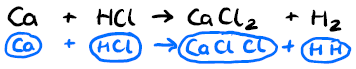 Ca + HCl → CaCl₂ + H₂
Ca + HCl → CaClCl + HH